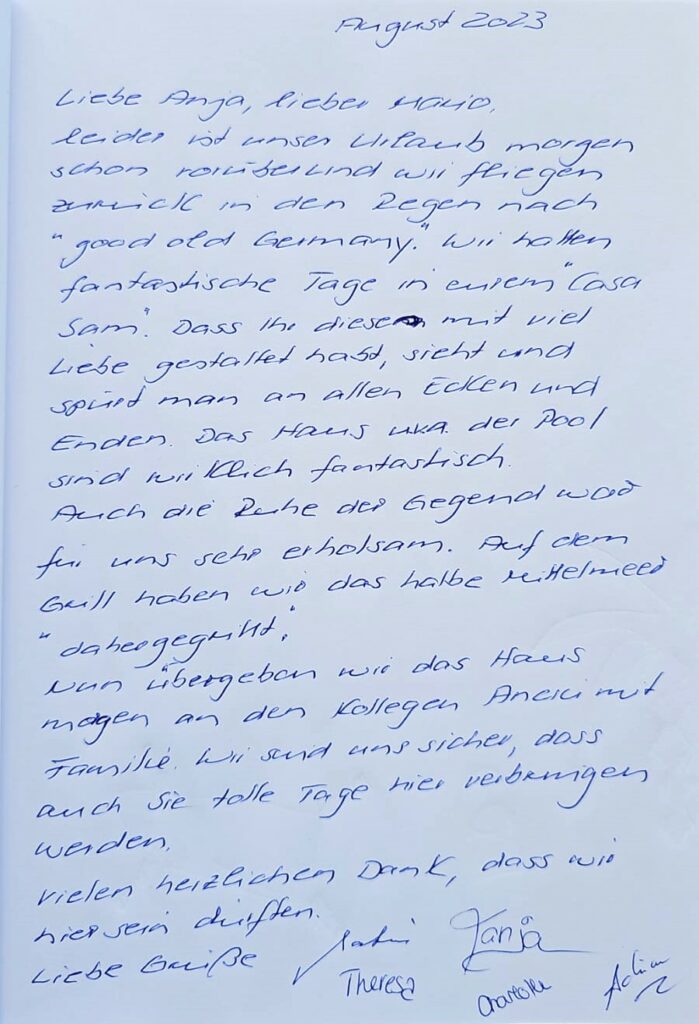 August 2023
Liebe Anja, lieber Mario,
leider ist unser Urlaub morgen
schon vorüber und wir fliegen
zurück in den Regen nach
"good old Germany." Wir hatten
fantastische Tage in eurem "Casa
Sam". Dass Ihr diese mit viel
Liebe gestaltet habt, sieht und
spürt man an allen Ecken und
Enden. Das Haus u.a. der Pool
sind wirklich fantastisch.
Auch die Ruhe der Gegend war
für uns sehr erholsam. Auf dem
Grill haben wir das halbe Mittelmeer
"dahergegrillt."
Nun übergeben wir das Haus
morgen an den Kollegen mit
Familie. Wir sind uns sicher, dass
auch Sie tolle Tage hier verbringen
werden.
Vielen herzlichen Dank, dass wir
hier sein durften.
Liebe Grüße
Tanja
Theresa
Charlotte
Adrian